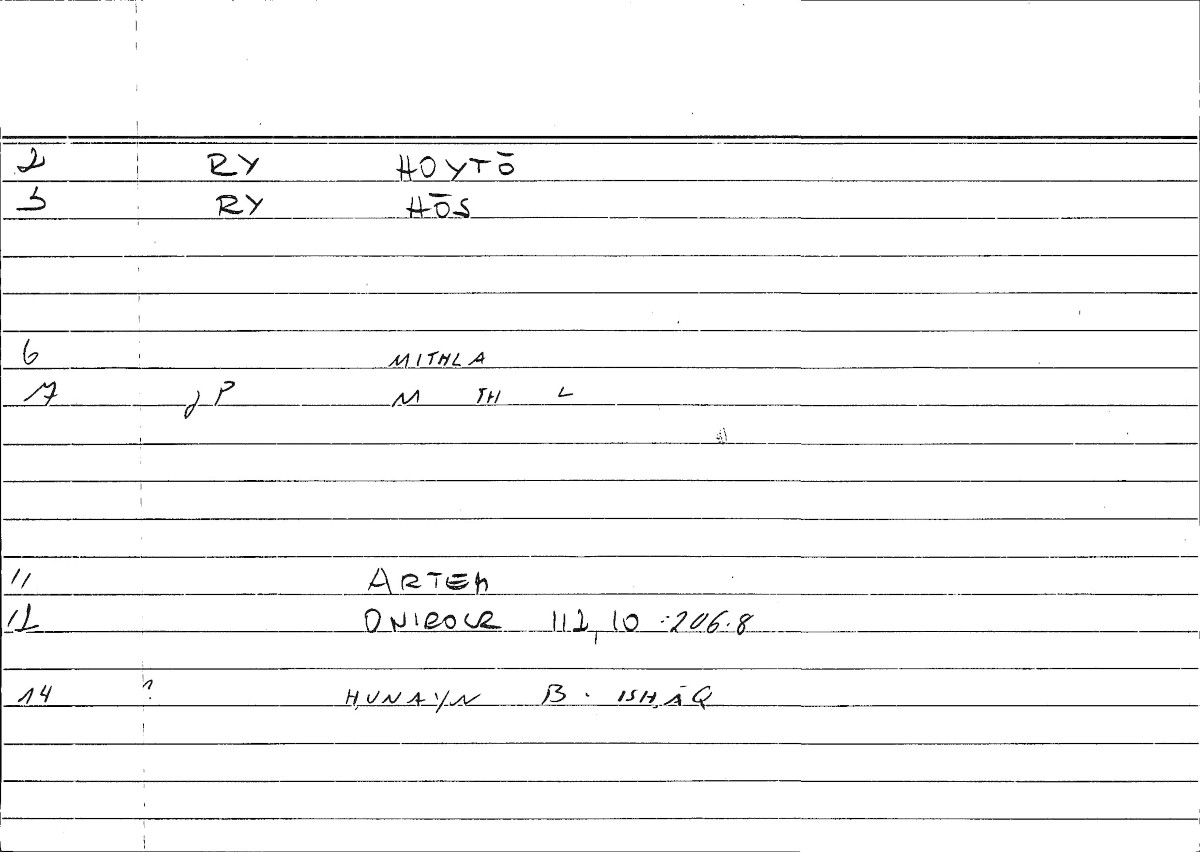 2 RY HOYTŌ
3 RY HŌS
6 MITHLA
7 JP M TH L
11 ARTEM
12 ONIROCR 112,10 :206.8
14 ? ḤUNAYN B. ISḤĀQ